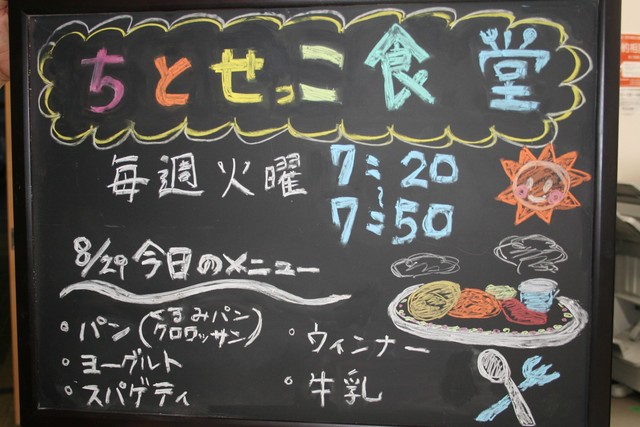 ちとせっこ食堂
毎週火曜 7:20
~
7:50
8/29 今日のメニュー
・パン(くるみパン
クロワッサン)
・ヨーグルト
・スパゲティ
・ウィンナー
・牛乳